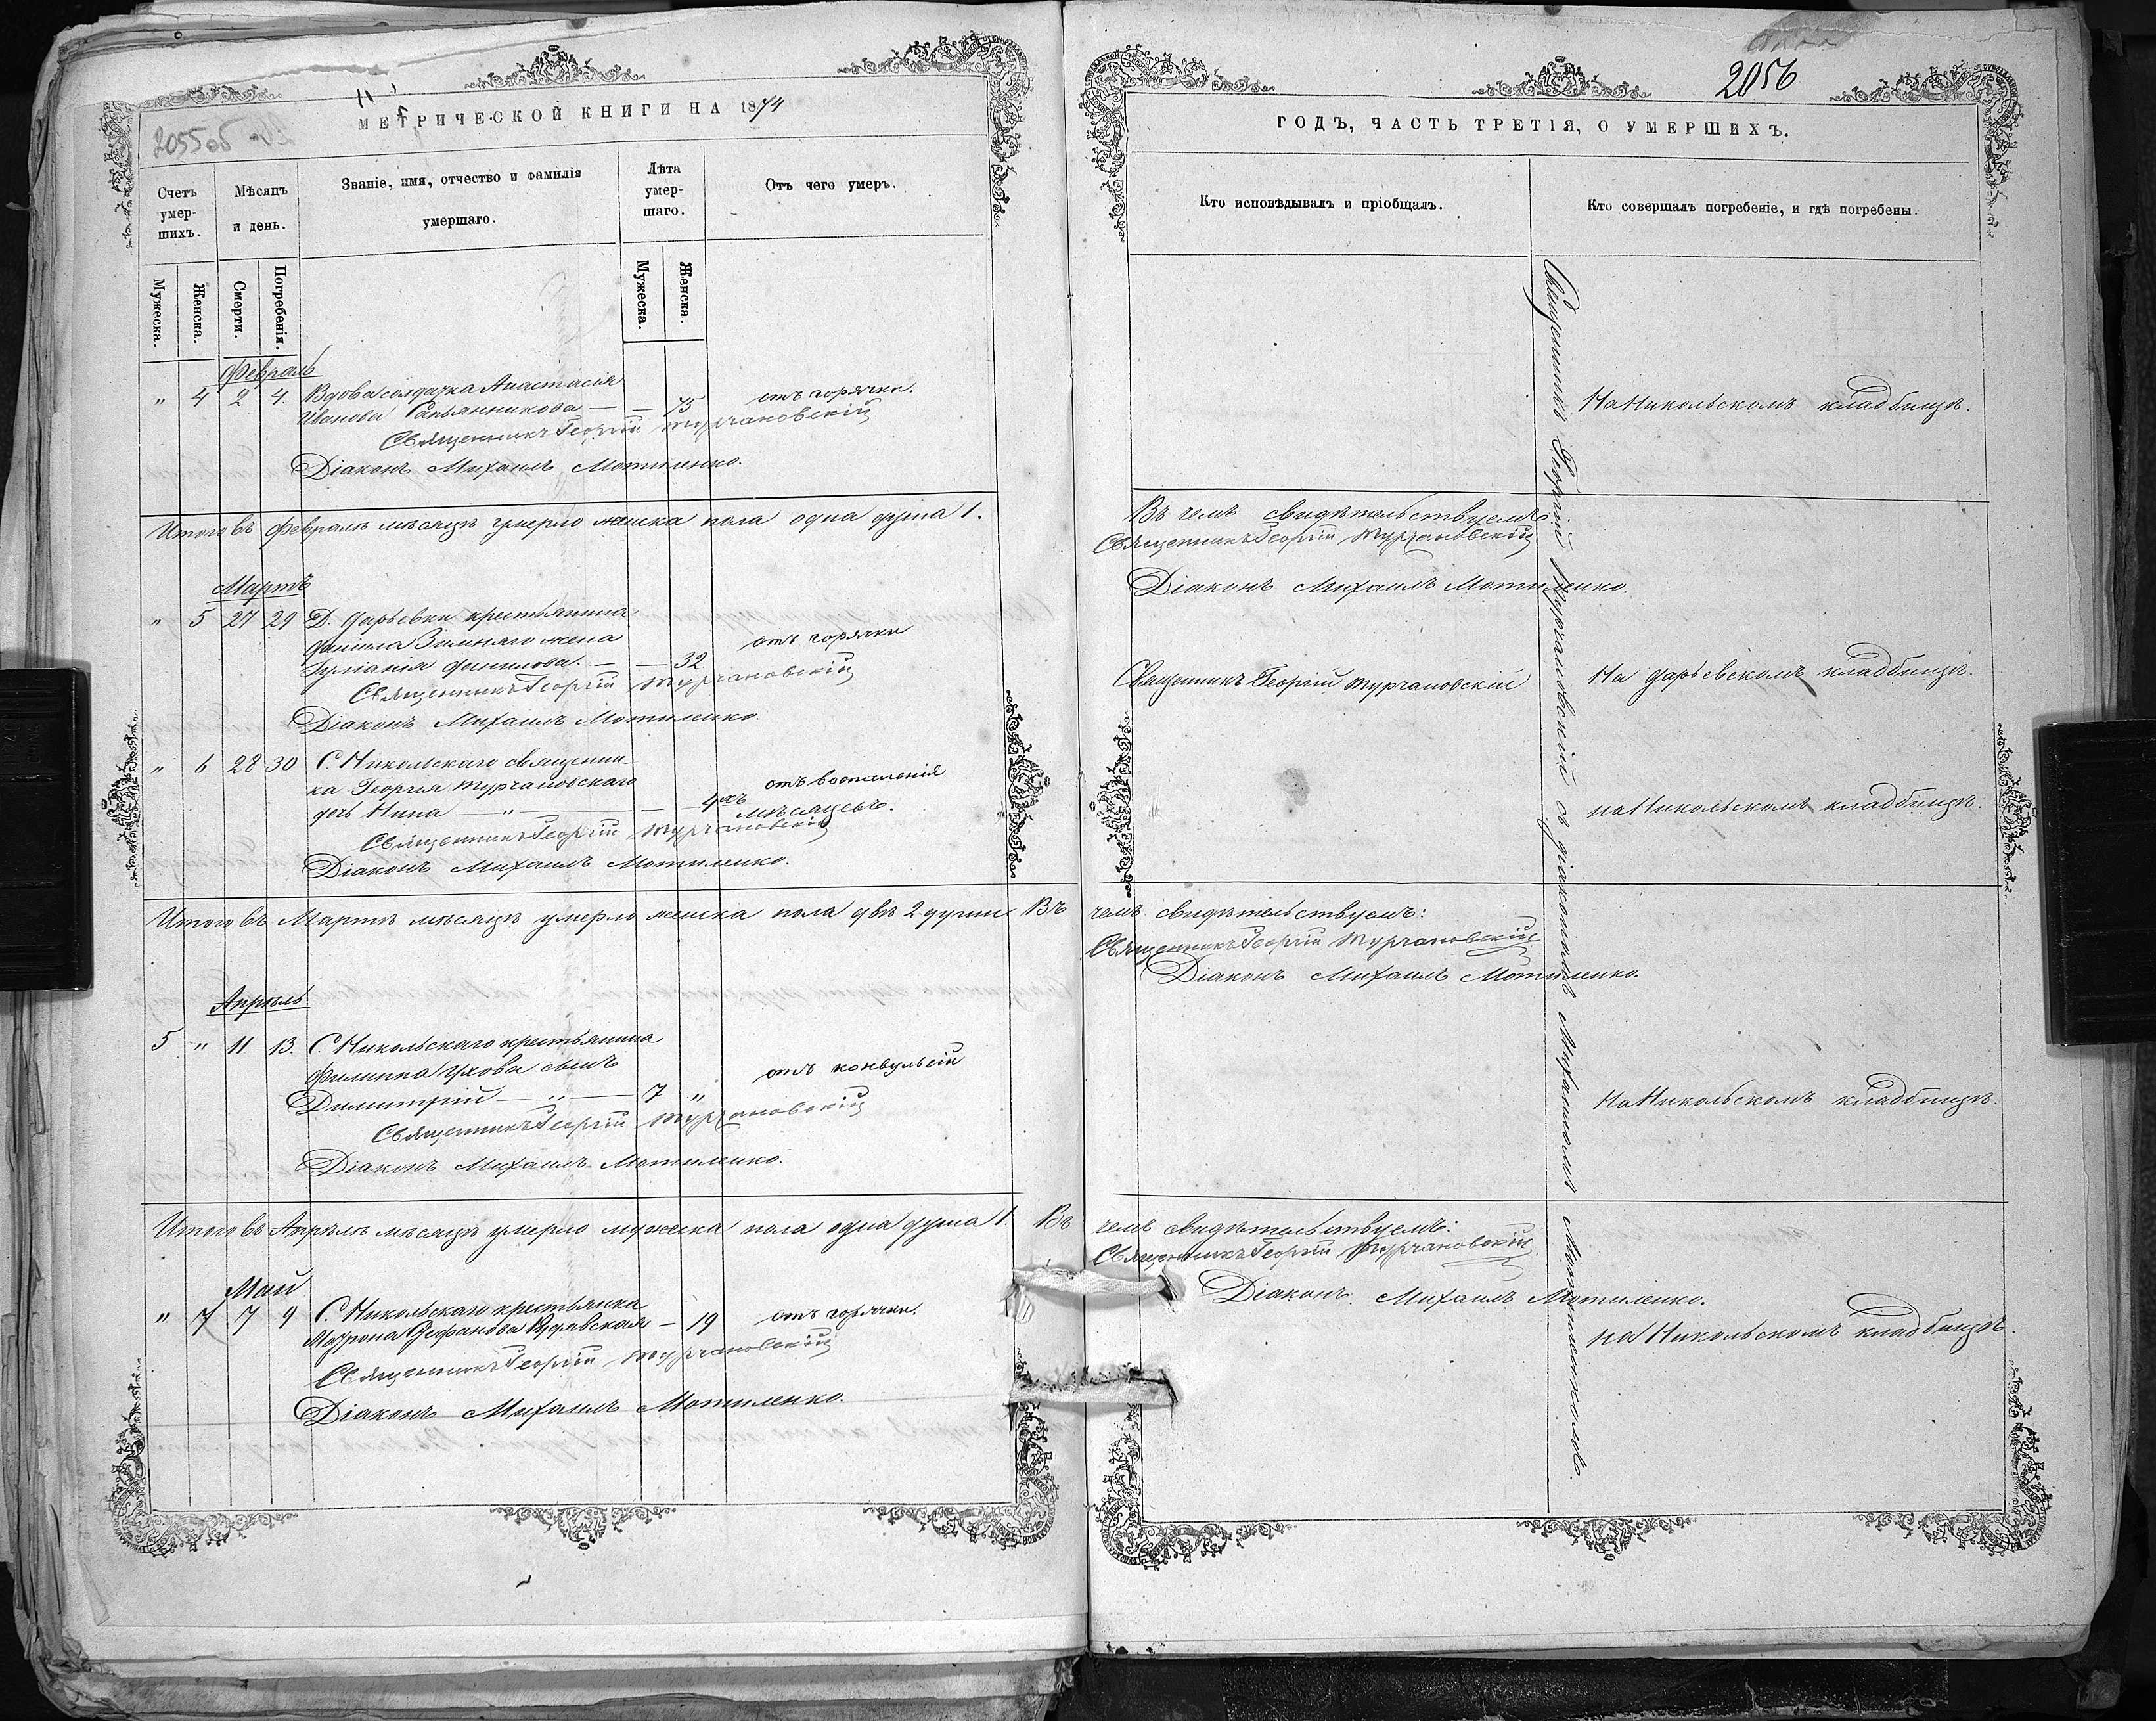 2055об
МЕТРИЧЕСКОЙ КНИГИ НА 1874
Счетъ умершихъ.
Мѣсяцъ и день.
Званіе, имя, отчество и фамилія умершаго.
Лѣта умершаго.
Отъ чего умеръ.
Мужеска.
Женска.
Смерти.
Погребенія.
Мужеска.
Женска.
Февраль
" 4 2 4. Вдова солдатка Анастасія
Иванова — — 75 отъ горячки.
Священникъ Георгій Турчановскій
Діаконъ Михаилъ Мотиленко.
Итого въ Февралѣ мѣсяцѣ умерло женска пола одна душа 1.
Мартъ
" 5 27 29 Д. Дарьевки крестьянина
Даніила Зимняго жена
Данилова. — — 32. отъ горячки
Священникъ Георгій Турчановскій
Діаконъ Михаилъ Мотиленко.
" 6 28 30 С. Никольскаго священни-
ка Георгія Турчановскаго
дочь Нина — " — — 4хъ мѣсяцевъ. отъ воспаленія
Священникъ Георгій Турчановскій
Діаконъ Михаилъ Мотиленко.
Итого въ Мартѣ мѣсяцѣ умерло женска пола двѣ 2 души Въ
Апрѣль
5 " 11 13. С. Никольскаго крестьянина
Филиппа Ухова сынъ
Димитрій — " — 7 " отъ конвульсій
Священникъ Георгій Турчановскій
Діаконъ Михаилъ Мотиленко.
Итого въ Апрѣлѣ мѣсяцѣ умерло мужеска пола одна душа 1. Въ
Май
" 7 7 9 С. Никольскаго крестьянка
Матрона Стефанова — 19 отъ горячки.
Священникъ Георгій Турчановскій
Діаконъ Михаилъ Мотиленко.
2056
ГОДЪ, ЧАСТЬ ТРЕТІЯ, О УМЕРШИХЪ.
Кто исповѣдывалъ и пріобщалъ.
Кто совершалъ погребеніе, и гдѣ погребены.
Священникъ Георгій Турчановскій съ діакономъ Михаиломъ Мотиленкомъ.
На Никольскомъ кладбищѣ.
Въ чемъ свидѣтельствуемъ:
Священникъ Георгій Турчановскій
Діаконъ Михаилъ Мотиленко.
Священникъ Георгій Турчановскій
На Дарьевскомъ кладбищѣ.
на Никольскомъ кладбищѣ.
чемъ свидѣтельствуемъ:
Священникъ Георгій Турчановскій
Діаконъ Михаилъ Мотиленко.
На Никольскомъ кладбищѣ.
чемъ свидѣтельствуемъ:
Священникъ Георгій Турчановскій.
Діаконъ Михаилъ Мотиленко.
на Никольскомъ кладбищѣ.